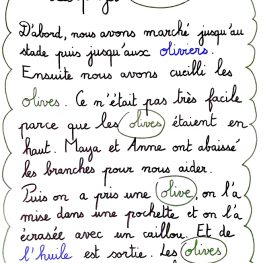 D'abord, nous avons marché jusqu'au
stade puis jusqu'aux oliviers.
Ensuite nous avons cueilli les
olives. Ce n'était pas très facile
parce que les olives étaient en
haut. Maya et Anne ont abaissé
les branches pour nous aider.
Puis on a pris une olive, on l'a
mise dans une pochette et on l'a
écrasée avec un caillou. Et de
l'huile est sortie. Les olives